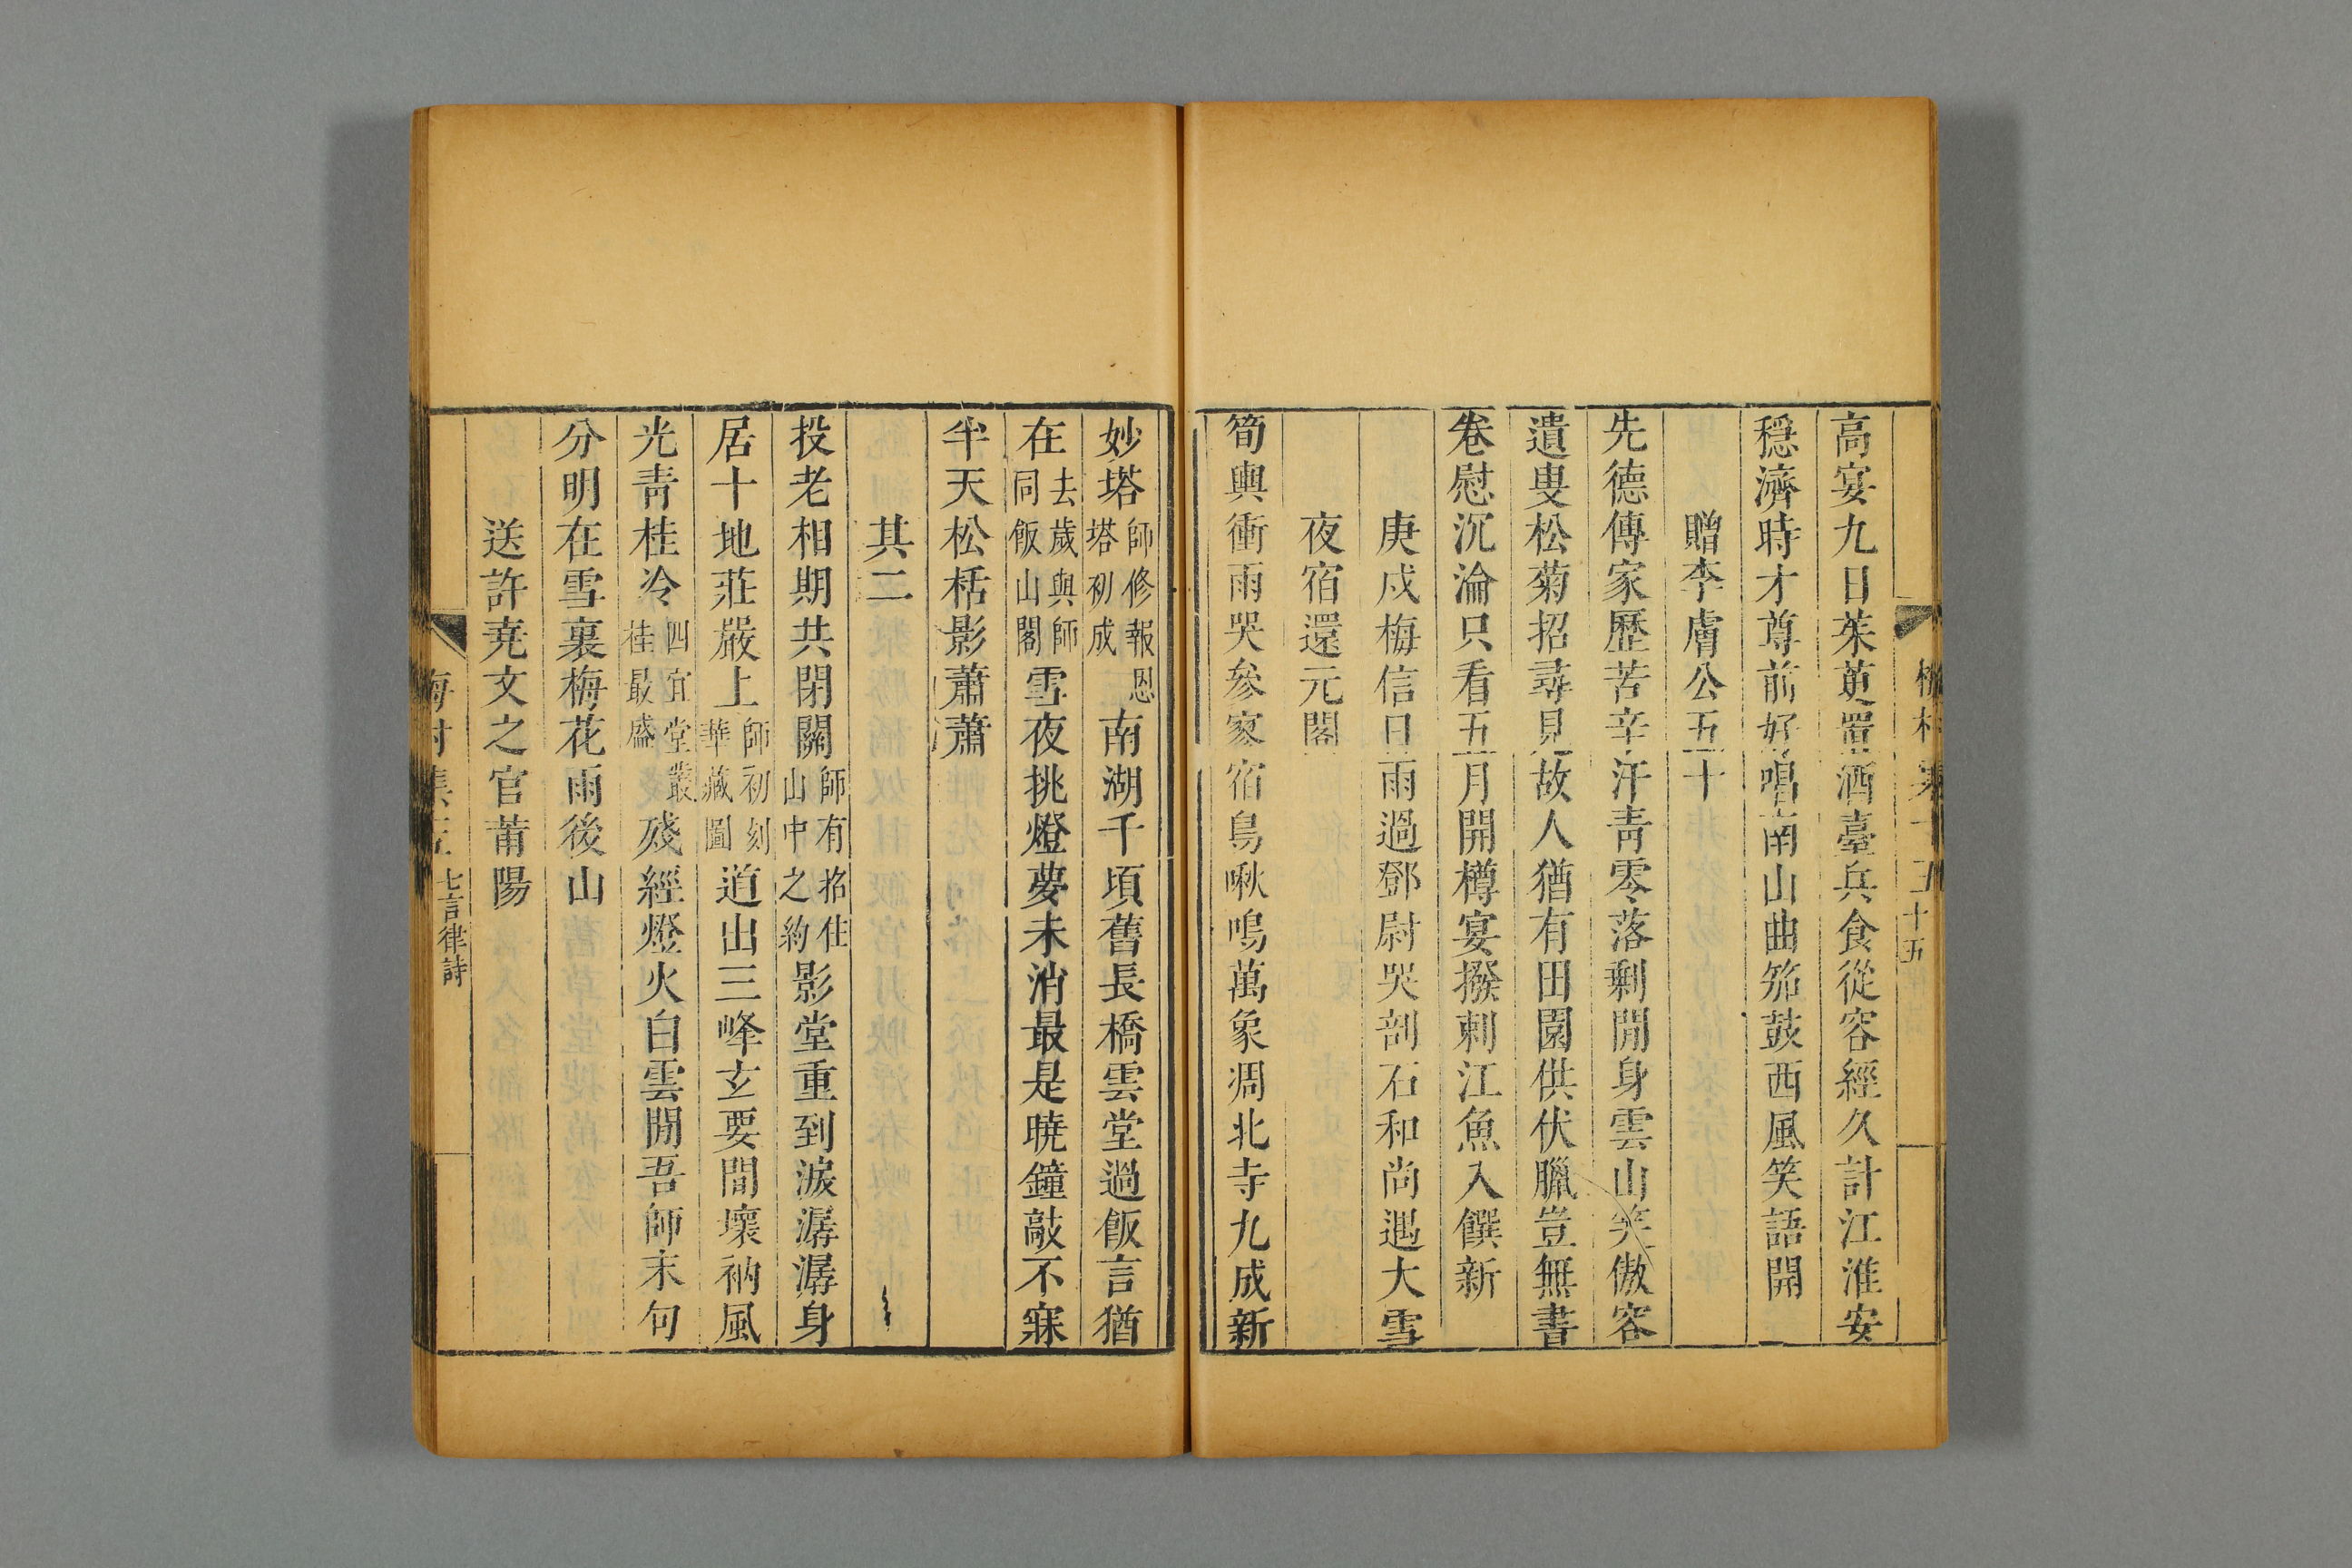 高宴九日茱萸置酒臺兵食從容經久計江淮安
穩濟時才尊前好唱南山曲笳鼓西風笑語開
贈李膚公五十
先德傳家歷苦辛汗青零落剩閒身雲山笑傲容
遺叟松菊招尋見故人猶有田園供伏臘豈無書
卷慰沉淪只看五月開樽宴撥剌江魚入饌新
庚戍梅信日雨過鄧尉哭剖石和尚遇大雪
夜宿還元閣
筍輿衝雨哭參寥宿鳥啾鳴萬象凋北寺九成新
妙塔師修報恩塔初成南湖千頃舊長橋雲堂過飯言猶
在去歲與師同飯山閣雪夜挑燈夢未消最是曉鐘敲不寐
半天松栝影蕭蕭
其二
投老相期共閉關師有招住山中之約影堂重到淚潺潺身
居十地莊嚴上師初刻華藏圖道出三峰玄要間壞衲風
光青桂冷四宜堂叢桂最盛殘經燈火白雲閒吾師末句
分明在雪裏梅花雨後山
送許堯文之官莆陽
七言律詩